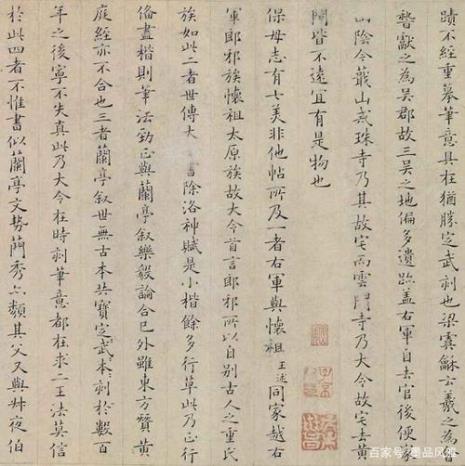 蹟不經重摹筆意具在猶勝定武刻也梁虞龢云羲之為會
嵇獻之為吳郡故三吳之地偏多遺跡蓋右軍自去官後便家
山陰今蕺山戒珠寺乃其故宅而雲門寺乃大令故宅去黃
閍皆不遠宜有是物也
保母志有七美非他帖所及一者右軍與懷祖王述同家越右
軍郎邪族懷祖太原族故大令首言郎邪所以自別古人之重氏
族如此二者世傳大書除洛神賦是小楷餘多行草此乃正行
備盡楷則筆法勁正與蘭亭叙樂毅論合已外雖東方贊黃
庭經亦不合也三者蘭亭叙世無古本共寶定武本刻於數百
年之後寧不失真此乃大令在時刻筆意都在求二王法莫信
於此四者不惟書似蘭亭文勢簡秀亦類其父又與艸夜伯
百家号/墨品风雅